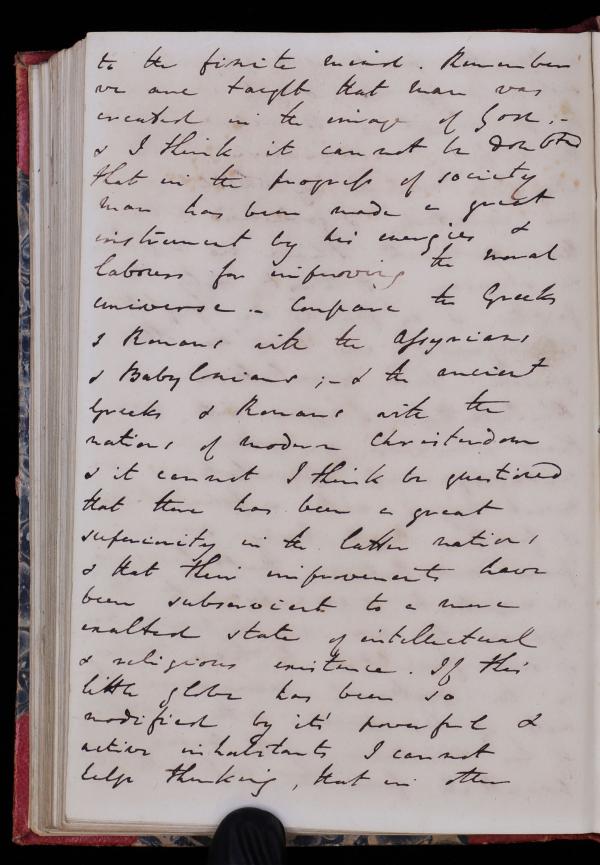 to the finite mind. Remember
we are taught that man was
created in the image of God. -
& I think it can not be doubted
that in the progress of society
man has been made a great
instrument by his energies &
labours for improving the moral
universe. - Compare the Greeks
& Romans with the Assyrians
& Babylonians ; - & the ancient
Greeks & Romans with the
nations of modern Christendom
& it cannot I think be questioned
that there has been a great
superiority in the latter nations
& that their improvements have
been subservient to a more
exalted state of intellectual
& religious existence. If this
little globe has been so
modified by it's powerful &
active inhabitants I cannot
help thinking, that in other